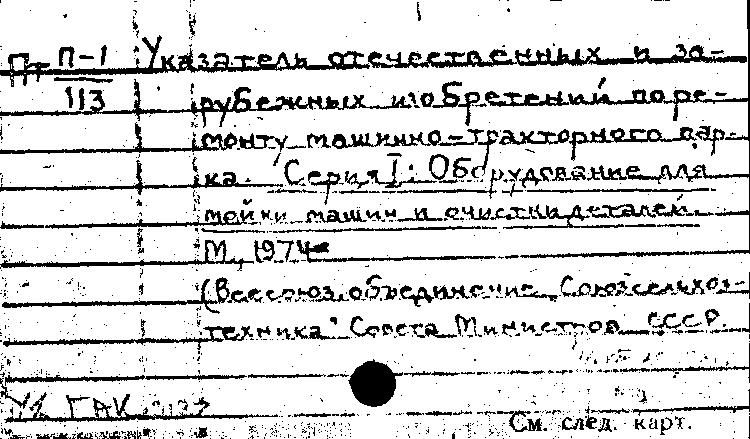 Пт П-1 Указатель отечественных и за-
113 рубежных изобретений по ре-
монту машинно-тракторного пар-
ка. Серия I: Оборудование для
мойки машин и очистки деталей.
М., 1974-
(Всесоюз. объединение "Союзсельхоз-
техника" Совета Министров СССР.
ГАК
См. след. карт.